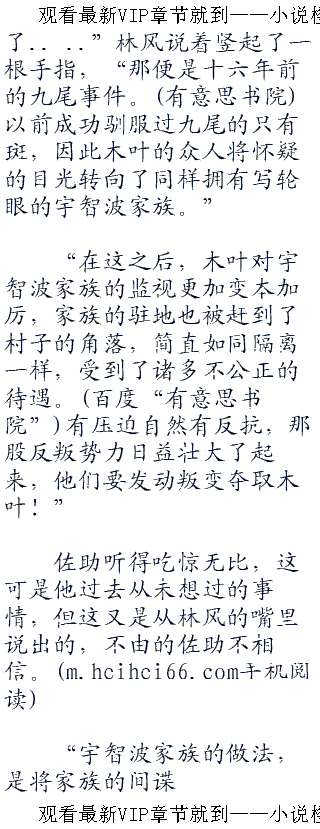 观看最新VIP章节就到——小说检
了.. ..”林风说着竖起了一
根手指，“那便是十六年前
的九尾事件。(有意思书院)
以前成功驯服过九尾的只有
斑，因此木叶的众人将怀疑
的目光转向了同样拥有写轮
眼的宇智波家族。”
“在这之后，木叶对宇
智波家族的监视更加变本加
厉，家族的驻地也被赶到了
村子的角落，简直如同隔离
一样，受到了诸多不公正的
待遇。(百度“有意思书
院”)有压迫自然有反抗，那
股反叛势力日益壮大了起
来，他们要发动叛变夺取木
叶！”
佐助听得吃惊无比，这
可是他过去从未想过的事
情，但这又是从林风的嘴里
说出的，不由的佐助不相
信。(m.hcihci66.com手机阅
读)
“宇智波家族的做法，
是将家族的间谍
观看最新VIP章节就到——小说检